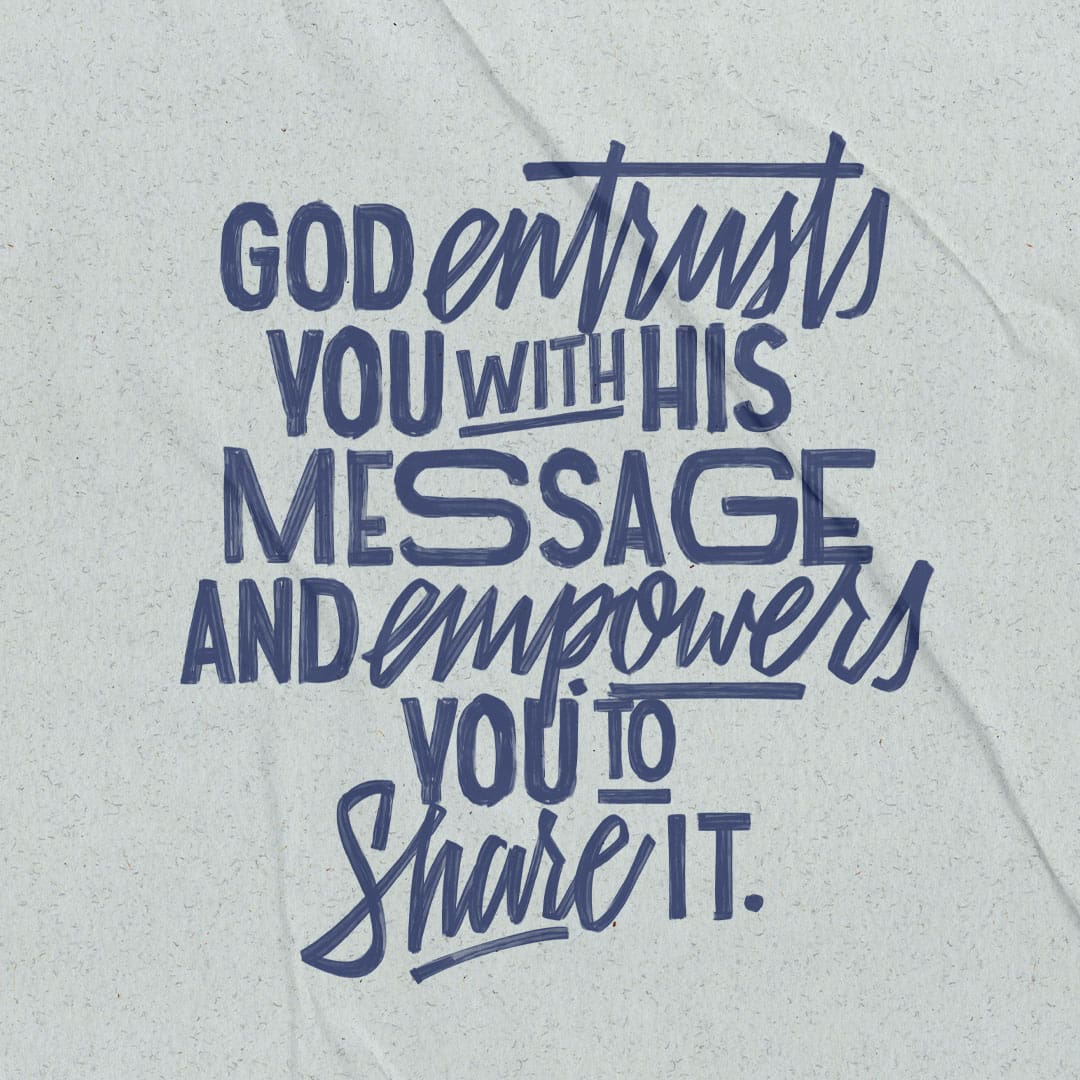 GOD entrusts
YOU WITH HIS
MESSAGE
AND empowers
YOU TO
Share IT.